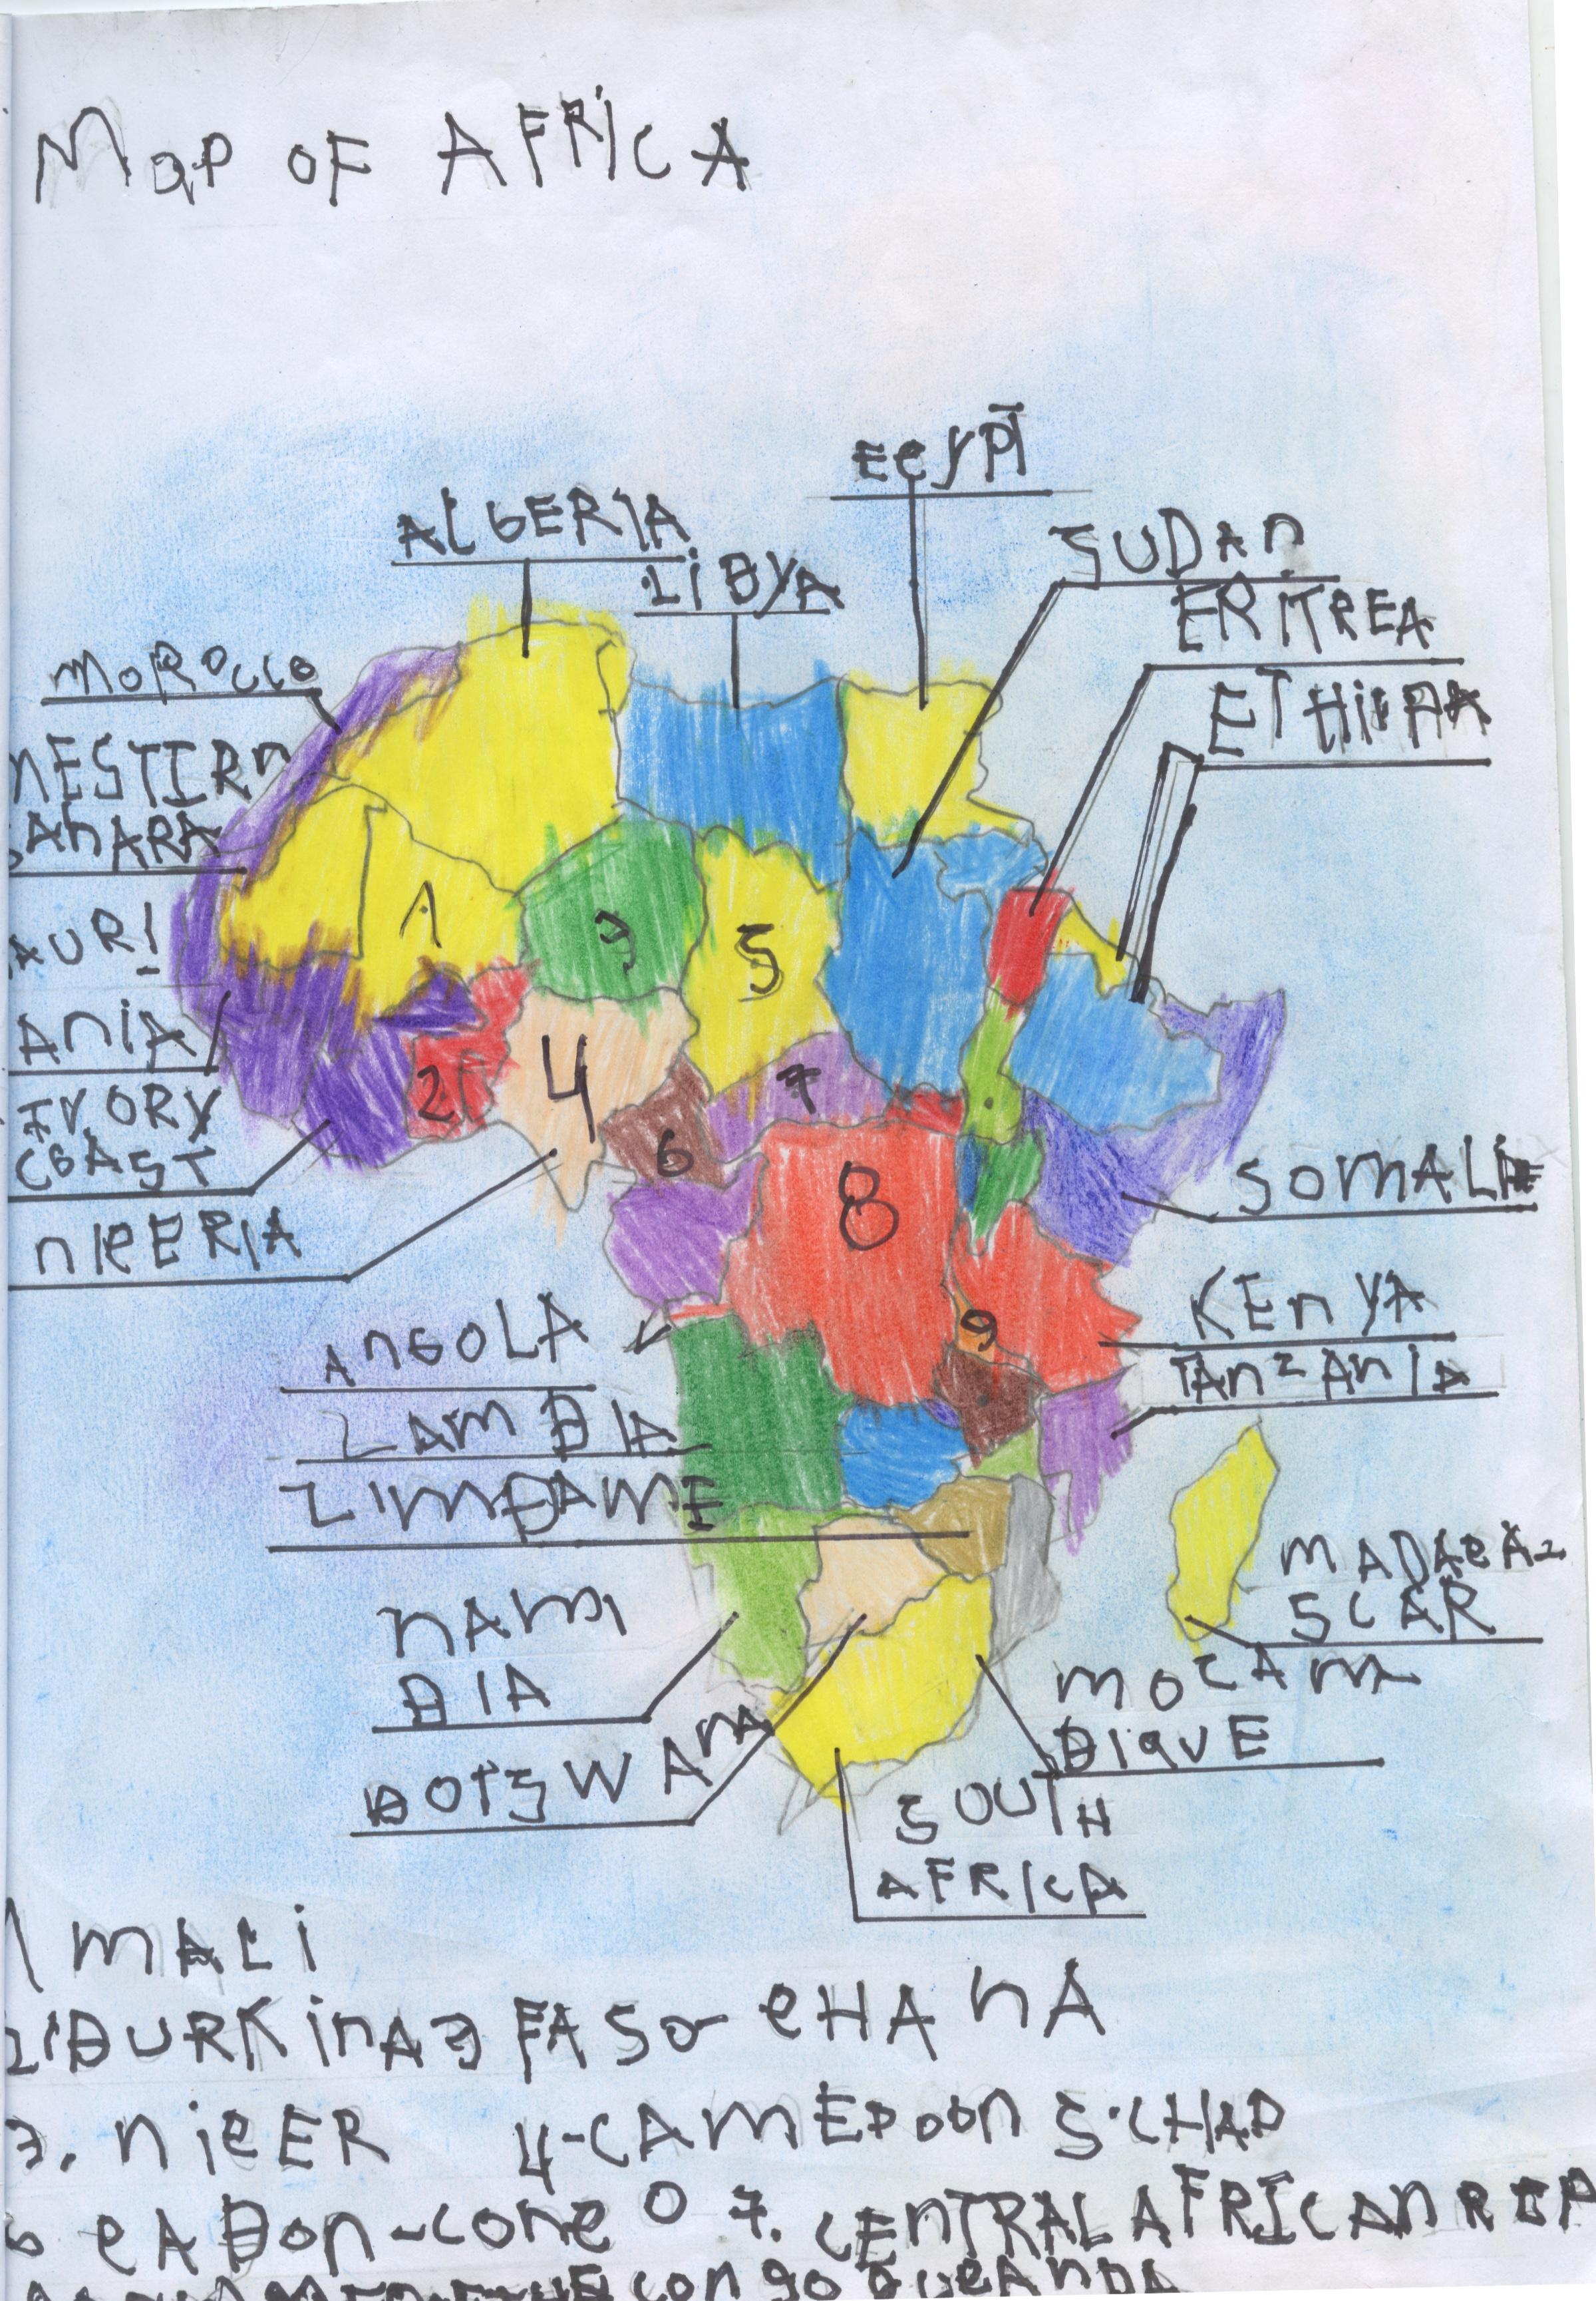 Map OF AFRICA
EeyPT
ALGERIA
SUDAN
LIBYA
ERITREA
MOROCCO
ETHI
NESTIRn
SAHARA
AURI
ANIA
IVORY
COAST
SOMALI
NIEERIA
KENYA
ANGOLA
TANZANIA
ZAMBIA
ZIMBAWE
MADAeA-
SCAR
NAMI
BIA
MOZAM
BIQUE
BOTSWANA
SOUTH
AFRICA
1 3 5 4 2 7 6 8 9
1 MALI
2 BURKINA FASO eHANA
3. NIeER 4-CAMEROON 5.CHAD
6 eABON-CONeO 7. CENTRAL AFRICAN REP
CONGO 9 UeANDA